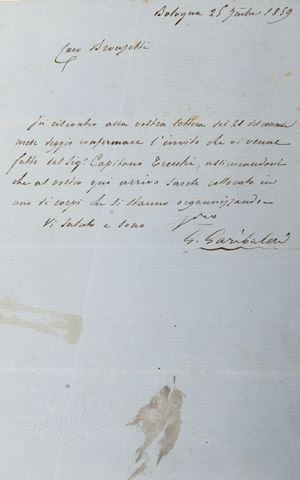 Bologna 25 7mbre 1859
Caro Bronzetti
In riscontro alla vostra lettera del 21 del corrente
mese deggio confermare l'invito che vi venne
fatto dal Sigr Capitano Tecchi, assicurandovi
che al vostro qui arrivo sarete collocato in
uno di corpi che si stanno organizzando
Vi saluto e sono
G. Garibaldi